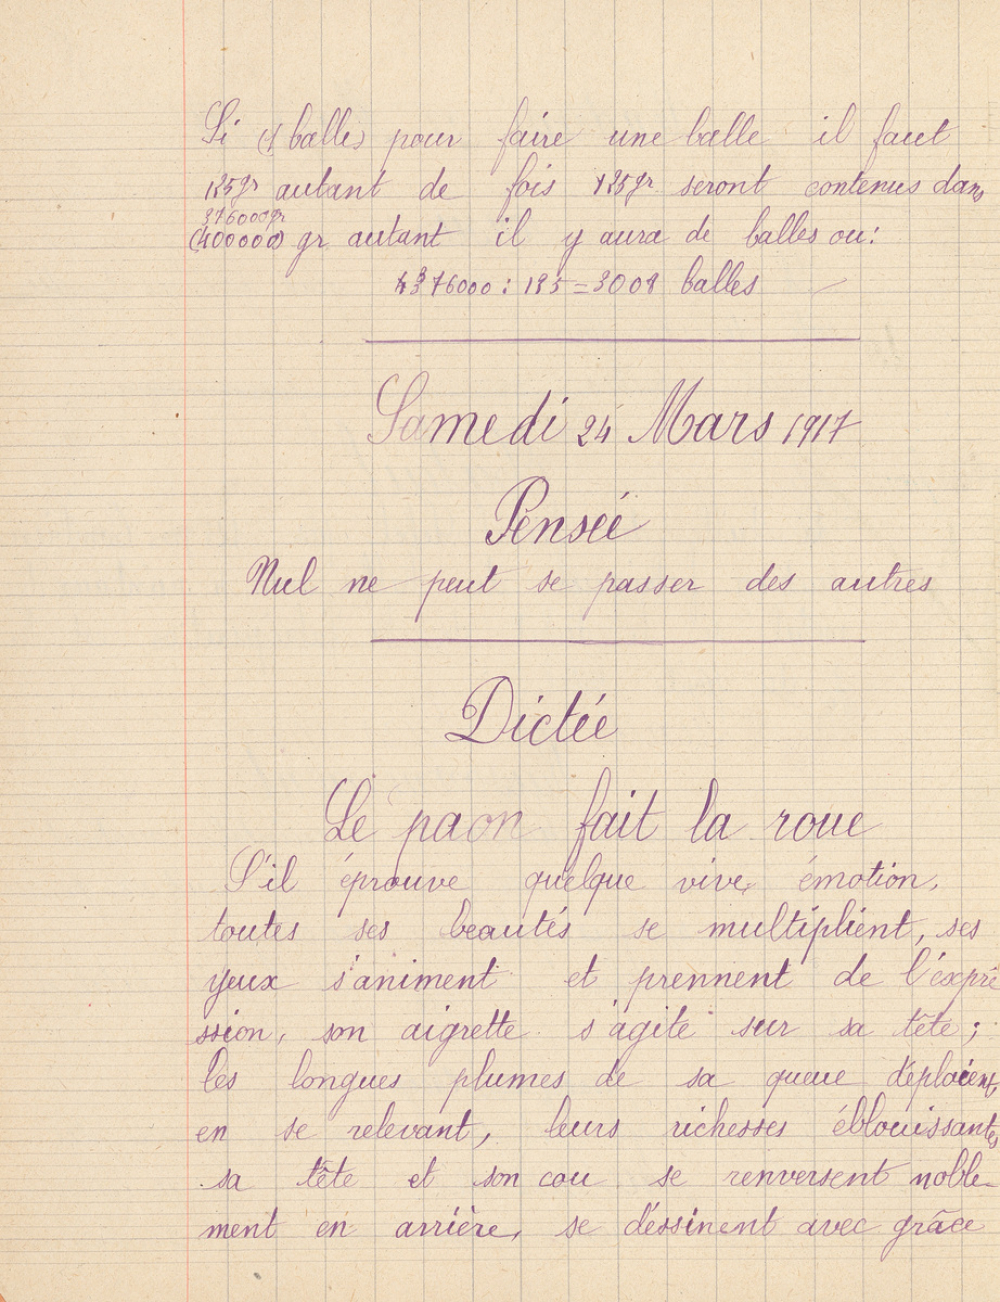 Si (1 balle) pour faire une balle il faut
125gr autant de fois 125gr seront contenus dans
376000gr
(400000) gr autant il y aura de balles ou:
376000 : 125 = 3008 balles
Samedi 24 Mars 1917
Pensée
Nul ne peut se passer des autres
Dictée
Le paon fait la roue
S'il éprouve quelque vive émotion,
toutes ses beautés se multiplient, ses
yeux s'animent et prennent de l'expre
ssion, son aigrette s'agite sur sa tête ;
les longues plumes de sa queue déploient,
en se relevant, leurs richesses éblouissantes
sa tête et son cou se renversent noble-
ment en arrière, se déssinent avec grâce